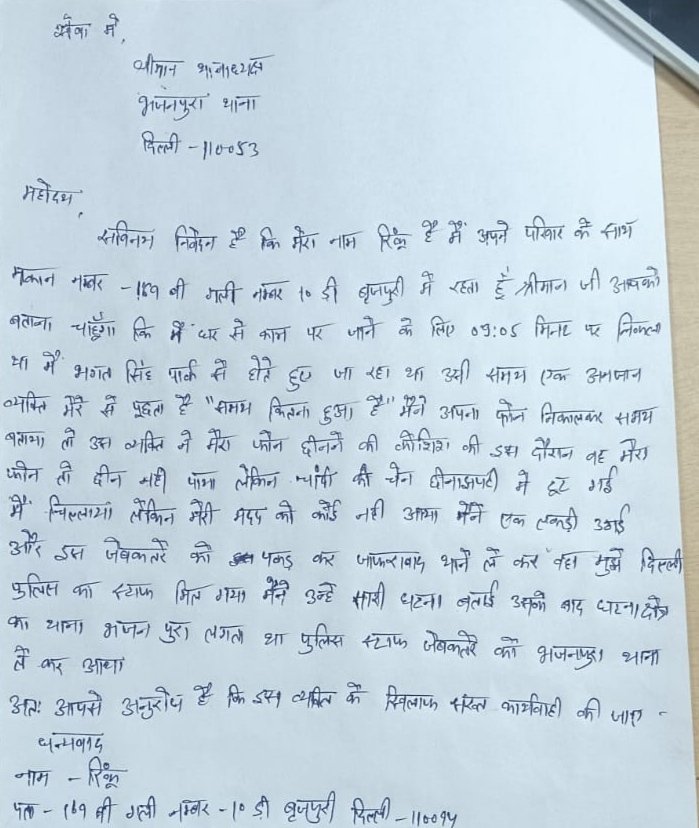 सेवा मे,
श्रीमान थानाध्यक्ष
भजनपुरा थाना
दिल्ली - 110053
महोदय,
सविनय निवेदन है कि मेरा नाम रिंकू है मैं अपने परिवार के साथ
मकान नम्बर - 169 बी गली नम्बर 10 डी बृजपुरी में रहता हूँ श्रीमान जी आपको
बताना चाहूँगा कि मैं घर से काम पर जाने के लिए 09:05 मिनट पर निकला
था मैं भगत सिंह पार्क से होते हुए जा रहा था उसी समय एक अनजान
व्यक्ति मेरे से पूछता है "समय कितना हुआ है" मैंने अपना फोन निकालकर समय
बताया तो उस व्यक्ति ने मेरा फोन छीनने की कोशिश की इस दौरान वह मेरा
फोन तो छीन नही पाया लेकिन चांदी की चेन छीनाझपटी में टूट गई
मैं चिल्लाया लेकिन मेरी मदद को कोई नही आया मैंने एक लकड़ी उठाई
और इस जेबकतरे को पकड़ कर जाफराबाद थाने ले कर वहा मुझे दिल्ली
पुलिस का स्टाफ मिल गया मैंने उन्हे सारी घटना बताई उसके बाद घटना क्षेत्र
का थाना भजन पुरा लगता था पुलिस स्टाफ जेबकतरे को भजनपुरा थाना
ले कर आया
अतः आपसे अनुरोध है कि इस व्यक्ति के खिलाफ सख्त कार्यवाही की जाए -
धन्यवाद
नाम - रिंकू
पता - 169 बी गली नम्बर - 10 डी बृजपुरी दिल्ली - 110094